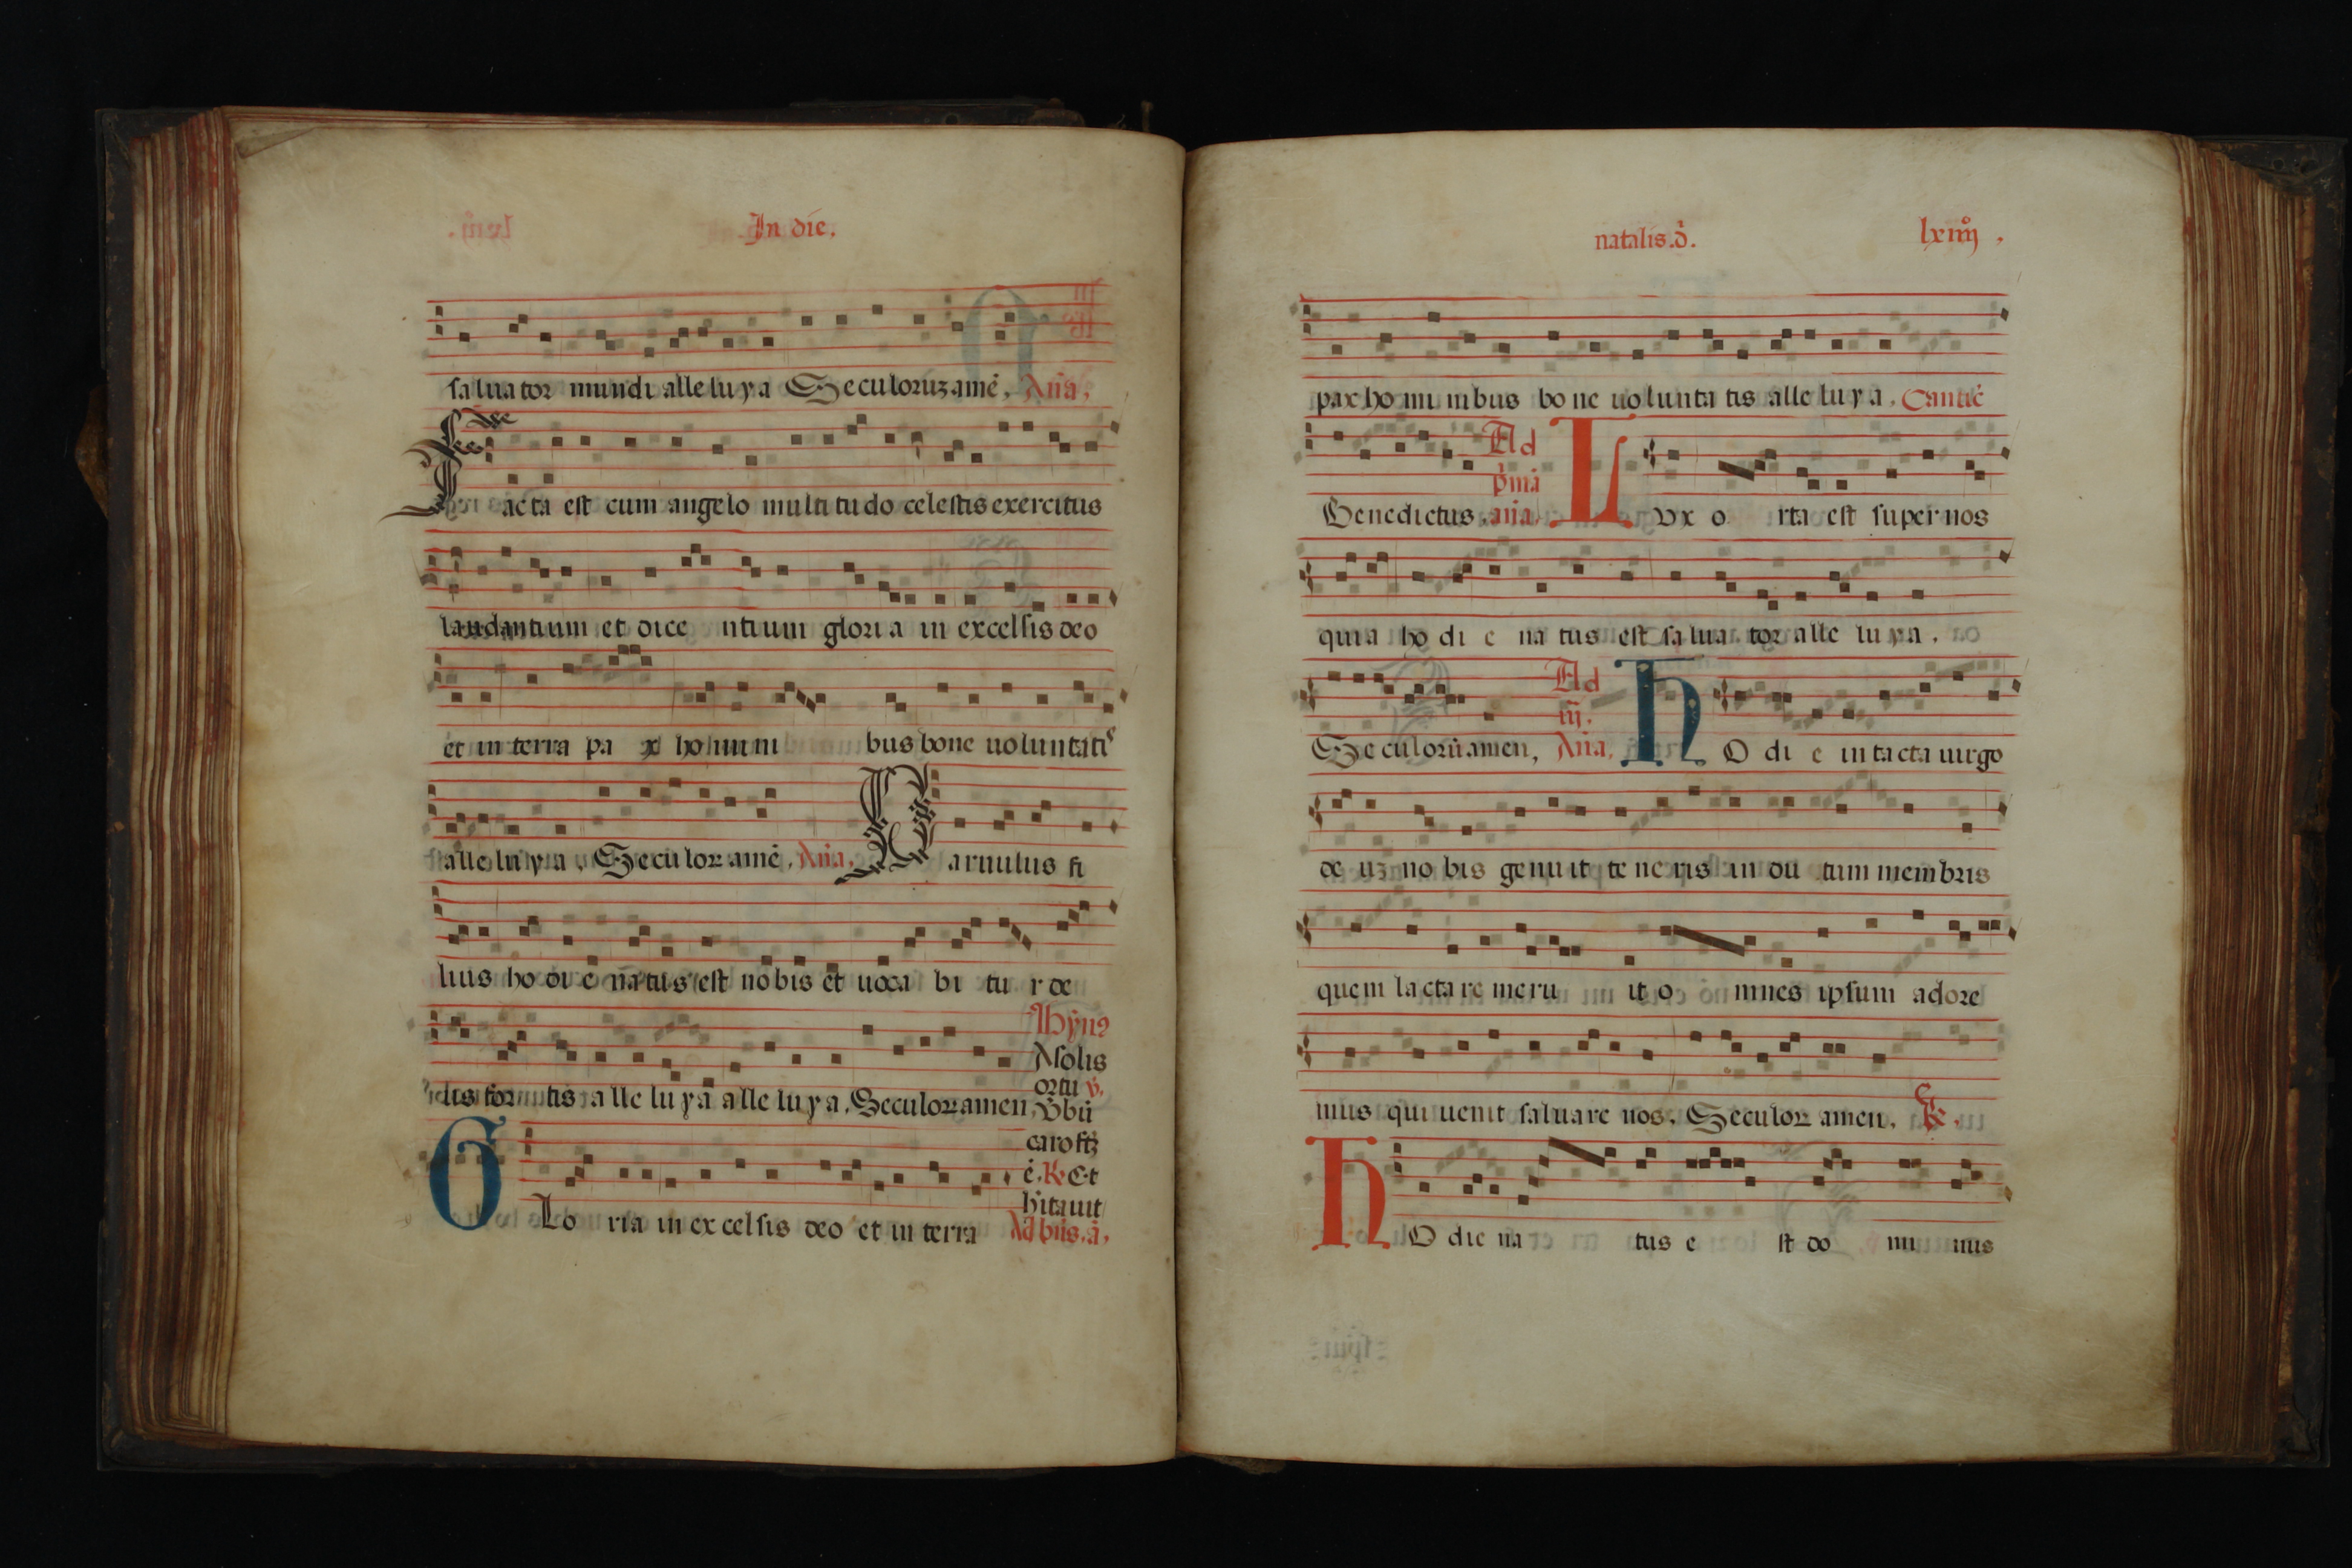 In die.
saluator mundi alleluya Seculoruz amē. Aña.
Facta est cum angelo multitudo celestis exercitus
laudantium et dicentium gloria in excelsis deo
et in terra pax hominibus bone uoluntatis
alleluya. Seculor amē. Aña. Paruulus fi
lius hodie natus est nobis et uocabitur de
us fortis alleluya alleluya. Seculor amen
Hỹnꝰ
A solis
ortu ℣.
Verbū
caro ftʒ
ē. ℟. Et
hītauit
GLoria in excelsis deo et in terra Ad bñs. ā.
natalis. d.
lxiiij
pax hominibus bone uoluntatis alleluya. Cantic̄
Benedictus. aña. Ad p̄mā LVx orta est super nos
quia hodie natus est saluator alleluya.
Seculorū amen, Aña. Ad iij. HOdie intacta uirgo
deuz nobis genuit teneris indutum membris
quem lactare meruit omnes ipsum adore
mus qui uenit saluare nos. Seculor amen. ℟.
HOdie natus est dominus